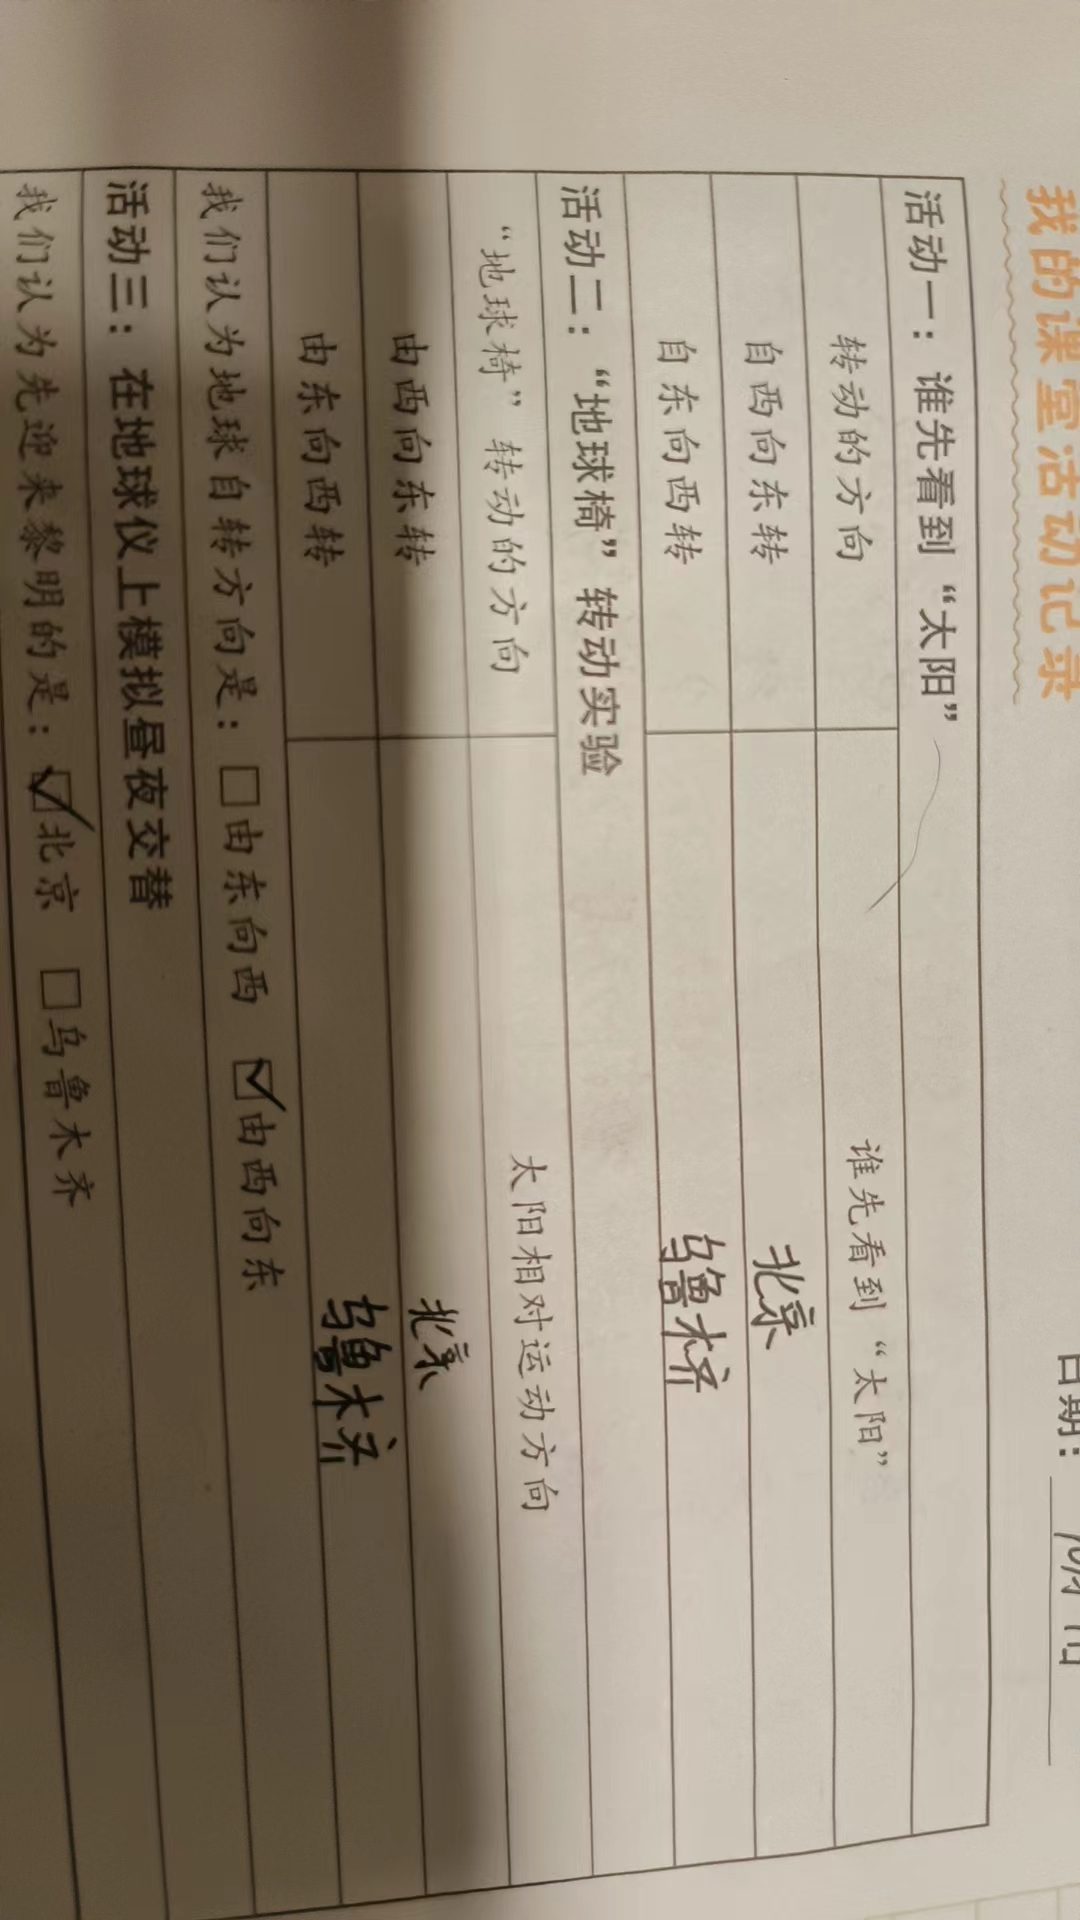 我的课堂活动记录
日期：
活动一：谁先看到“太阳”
转动的方向 谁先看到“太阳”
自西向东转 北京
自东向西转 乌鲁木齐
活动二：“地球椅”转动实验
“地球椅”转动的方向 太阳相对运动方向
由西向东转 北京
由东向西转 乌鲁木齐
我们认为地球自转方向是：□由东向西 ☑由西向东
活动三：在地球仪上模拟昼夜交替
我们认为先迎来黎明的是：☑北京 □乌鲁木齐